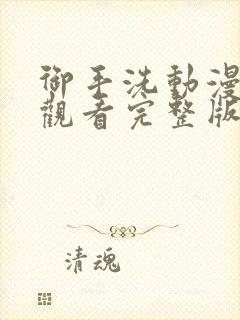 御手洗動漫
觀看完整版
清魂